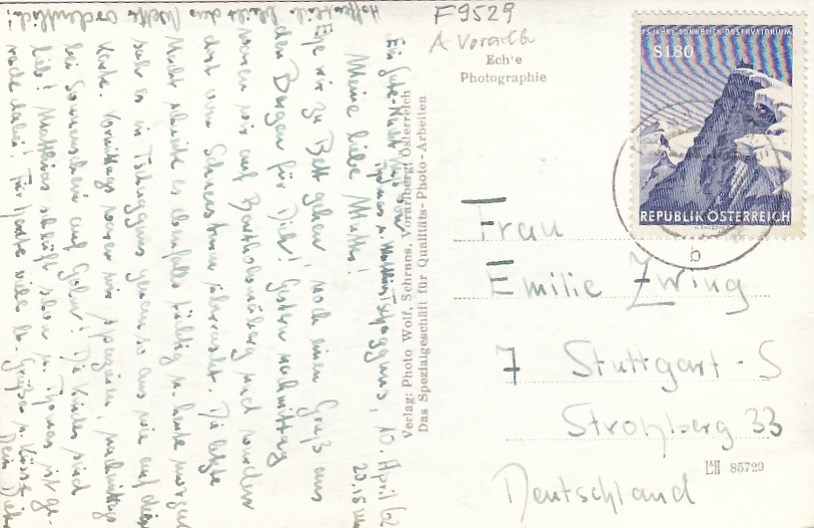 F9529
A Vorarlb
Ech'e
Photographie
75 JAHRE SONNBLICK-OBSERVATORIUM
S 1.80
REPUBLIK ÖSTERREICH
b
Frau
Emilie Zwing
7 Stuttgart-S
Strohberg 33
Deutschland
85729
Verlag: Photo Wolf, Schruns, Vorarlberg, Österreich
Das Spezialgeschäft für Qualitäts-Photo-Arbeiten
Tschagguns, 10. April 62
20.15 Uhr
Meine liebe Mutti!
Ehe wir zu Bett gehen, noch einen Gruß aus
den Bergen für Dich! Gestern nachmittag
waren wir auf Bartholomäberg und wurden
dort vom Schneesturm überrascht. Die letzte
Nacht schneite es ebenfalls tüchtig u. heute morgen
sah es in Tschagguns genau so aus wie auf dieser
Karte. Vormittags waren wir spazieren, nachmittags
bei Sonnenschein auf Golm! Die Kinder sind
lieb! Matthias schläft schon u. Thomas ist ge-
rade dabei! Für heute viele lb. Grüße u. Küsse
Dein
Hoffentlich bleibt das Wetter ordentlich!
Ein Gute-Nacht
Thomas u. Matthias